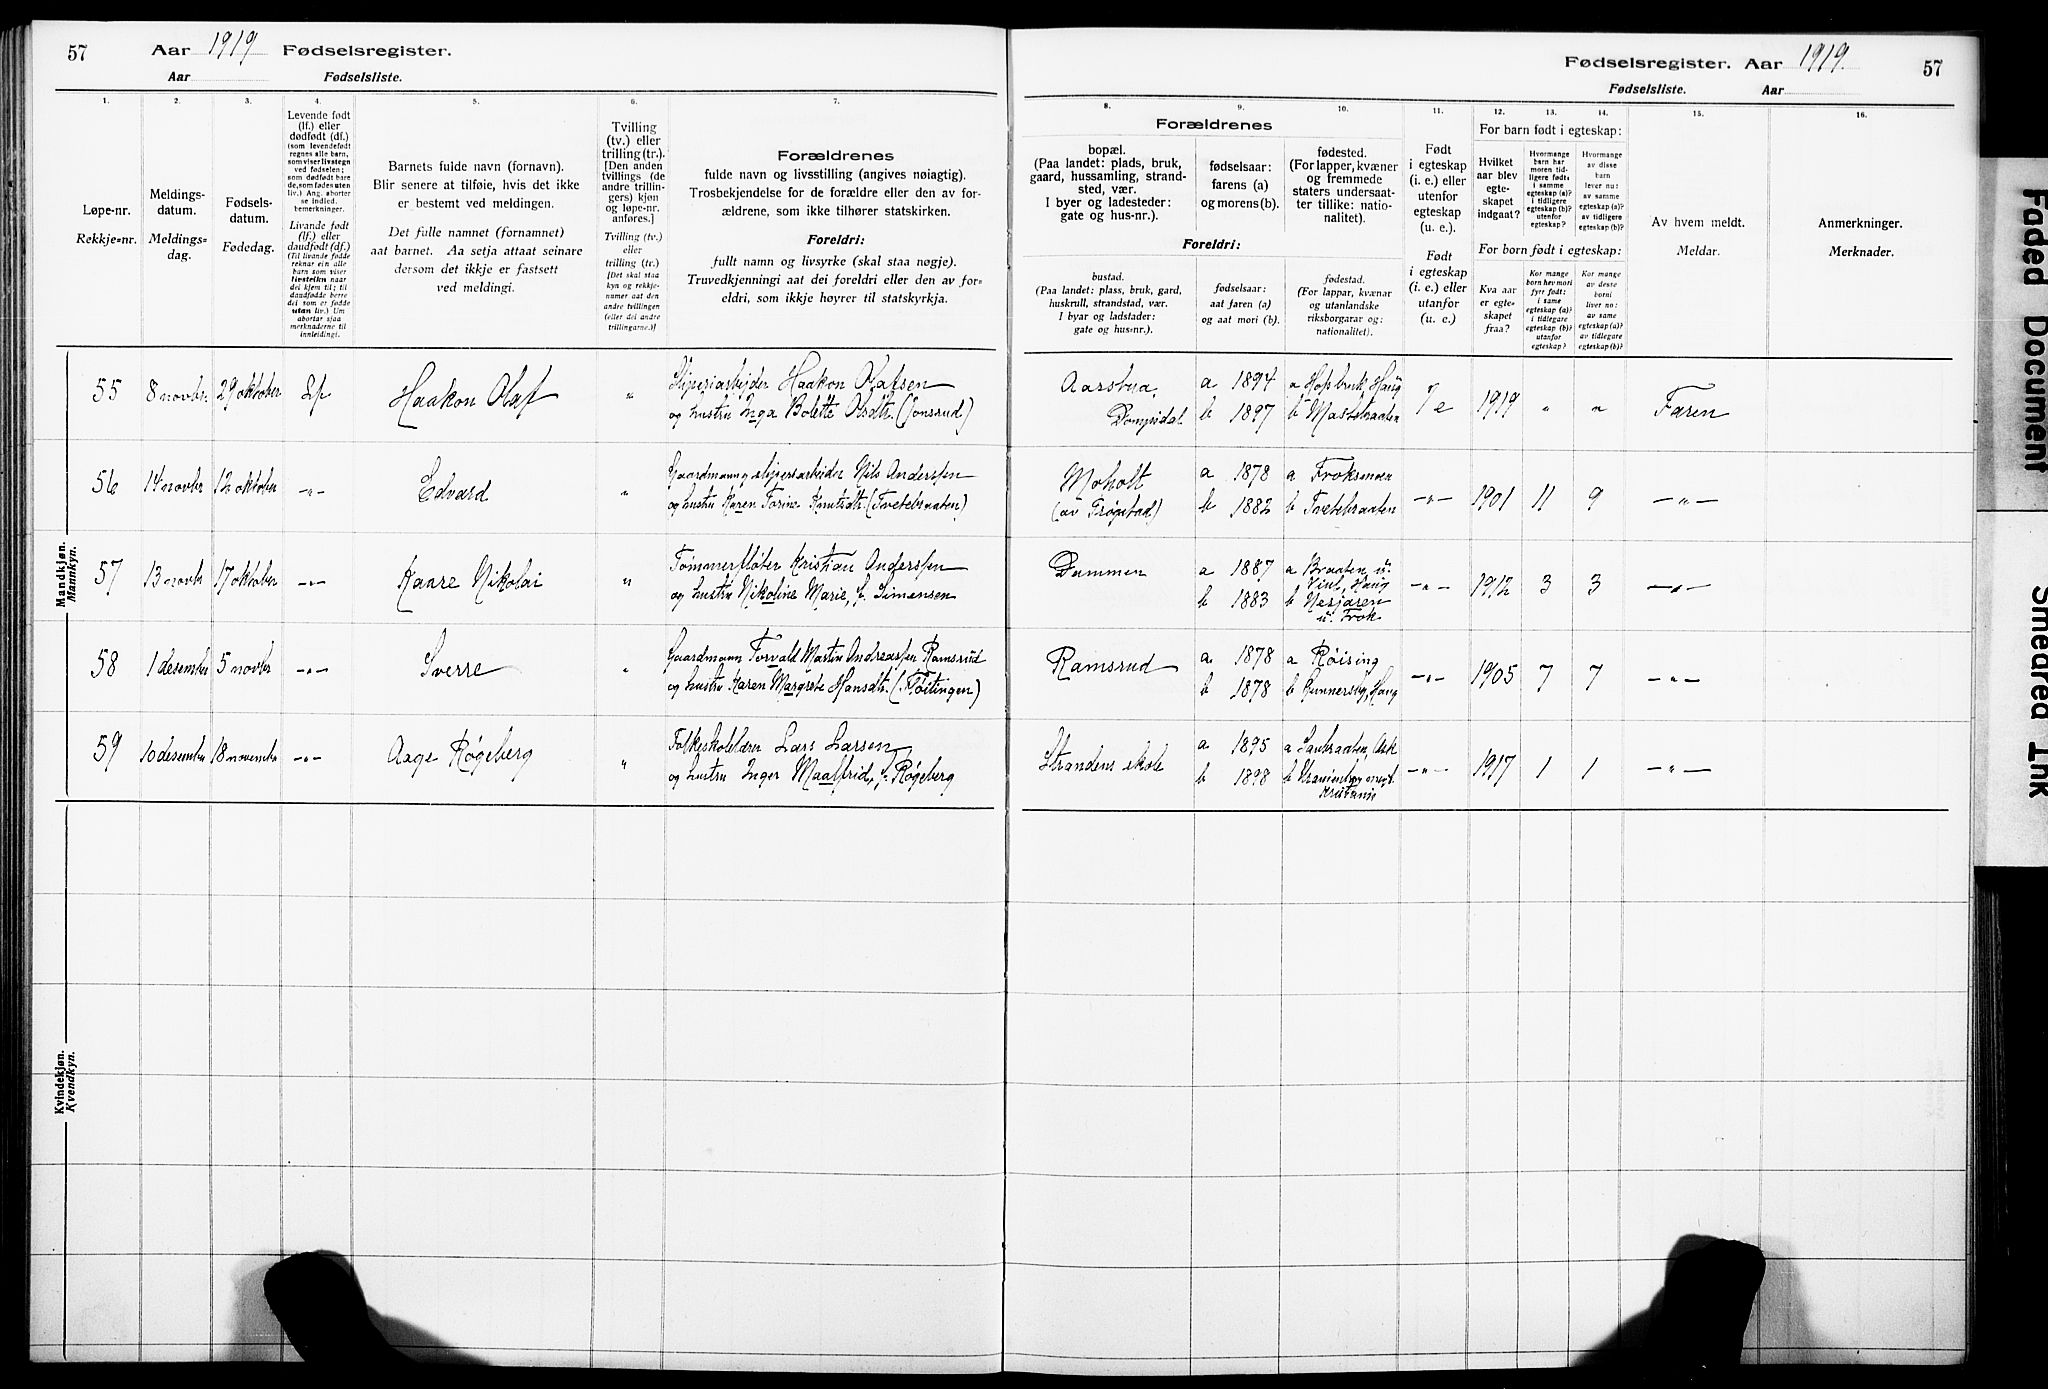 57 Aar 1919 Fødselsregister.
Aar Fødselsliste.
Fødselsregister. Aar 1919. 57
Fødselsliste. Aar
1. 2. 3. 4. 5. 6. 7.
Løpe-nr.
Rekkje-nr.
Meldings-
datum.
Meldings-
dag.
Fødsels-
datum.
Fødedag.
Levende født
(lf.) eller
dødfødt (df.)
(som levendefødt
regnes alle barn,
som viser livstegn
ved fødselen;
som dødfødt bare
de, som fødes uten
liv.) Ang. aborter
se indled.
bemerkninger.
Livande født
(lf.) eller
daudfødt (df.)
(Til livande fødde
reknar ein alle
barn som viser
livsteikn naar
dei kjem til; til
daudfødde berre
dei som er fødde
utan liv.) Um
abortar sjaa
merknaderne til
innleidingi.
Barnets fulde navn (fornavn).
Blir senere at tilføie, hvis det ikke
er bestemt ved meldingen.
Det fulle namnet (fornamnet)
aat barnet. Aa setja attaat seinare
dersom det ikkje er fastsett
ved meldingi.
Tvilling
(tv.) eller
trilling (tr.).
[Den anden
tvillings (de
andre trillin-
gers) kjøn
og løpe-nr.
anføres.]
Tvilling (tv.)
eller
trilling (tr.)
[Det skal staa
kyn og rekkje-
numer aat den
andre tvillingen
(eller dei andre
trillingarne.)]
Forældrenes
fulde navn og livsstilling (angives nøiagtig).
Trosbekjendelse for de forældre eller den av for-
ældrene, som ikke tilhører statskirken.
Foreldri:
fullt namn og livsyrke (skal staa nøgje).
Truvedkjenningi aat dei foreldri eller den av for-
eldri, som ikkje høyrer til statskyrkja.
8. 9. 10. 11. 12. 13. 14. 15. 16.
Forældrenes
bopæl.
(Paa landet: plads, bruk,
gaard, hussamling, strand-
sted, vær.
I byer og ladesteder:
gate og hus-nr.).
fødselsaar:
farens (a)
og morens (b).
fødested.
(For lapper, kvæner
og fremmede
staters undersaat-
ter tillike: natio-
nalitet).
Foreldri:
bustad.
(Paa landet: plass, bruk, gard,
huskrull, strandstad, vær.
I byar og ladstader:
gate og hus-nr.).
fødselsaar:
aat faren (a)
og aat mori (b).
fødestad.
(For lappar, kvænar
og utanlandske
riksborgarar og:
nationalitet).
Født
i egteskap
(i. e.) eller
utenfor
egteskap
(u. e.).
Født
i egteskap
(i. e.) eller
utanfor
egteskap
(u. e.)
For barn født i egteskap:
Hvilket
aar blev
egte-
skapet
indgaat?
Hvormange
barn har
moren tid-
ligere født:
i samme
egteskap (a)?
i tidligere
egteskap (b)?
utenfor
egteskap?
Hvormange
av disse
barn
lever nu:
av samme
egteskap (a)?
av tidligere
egteskap (b)?
For born født i egteskap:
Kva aar
er egte-
skapet
fraa?
Kor mange
born hev mori
fyrr født:
i same
egteskap (a)?
i tidlegare
egteskap (b)?
utanfor
egteskap?
Kor mange
av desse
borni
liver no:
av same
egteskap (a)?
av tidlegare
egteskap (b)?
Av hvem meldt.
Meldar.
Anmerkninger.
Merknader.
Mandkjøn.
Mannkyn.
55 8 novbr. 29 oktober Lf Haakon Olaf " Sliperiarbeider Haakon Olafsen
og hustru Inga Bolette Olsdtr. (Jonsrud)
Aarsbya, a 1894 a Hopsbruk, Haug
b 1897 b i e 1919 " " Faren
56 14 novbr 12 oktober -"- Edvard " Gaardmann og sliperiarbeider Nils Anderssen
og hustru Karen Torine Knutsdtr. (Tvetebraaten)
Moholt a 1878 a
(av Trøgstad) b 1882 b Tvetebraaten -"- 1901 11 9 -"-
57 13 novbr 17 oktober -"- Kaare Nikolai " Tømmerfløter Kristian Anderssen
og hustru Nikoline Marie, f. Simensen
Dammen a 1887 a Braaten u.
Viul, Haug
b 1883 b Nesjaren
u. Frok -"- 1912 3 3 -"-
58 1 desember 5 novbr -"- Sverre " Gaardmann Torvald Martin Andreassen Ramsrud
og hustru Karen Margrete Hansdtr. (Fløitingen)
Ramsrud a 1878 a Røising
b 1878 b Gunnersby, Haug -"- 1905 7 7 -"-
59 10 desember 18 november -"- Aage Røgeberg " Folkeskolelærer Lars Larsen
og hustru Inger Maalfrid, f. Røgeberg
Strandens skole a 1895 a Saubraaten, Ask
b 1898 b
Kristiania -"- 1917 1 1 -"-
Kvindekjøn.
Kvendkyn.
Faded Document
Smeared Ink